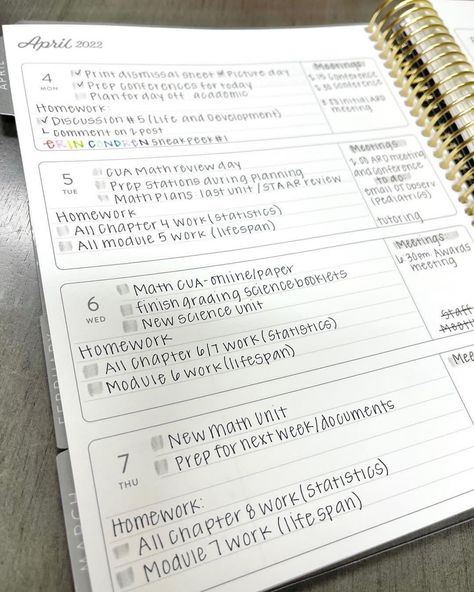 April 2022
APRIL
4
MON
Print dismissal sheet Picture day
Prep conferences for today
Plan for day off academic
Homework:
Discussion #5 (Life and Development)
L comment on 2 post
ERIN CONDREN sneak peek #1
Meetings
conference
ARD
meeting
5
TUE
CUA Math review day
Prep stations during Planning
Math Plans last unit/STAAR review
Homework
All Chapter 4 work (statistics)
All module 5 work (lifespan)
Meetings
ARD meeting
and conference
to do
email OT observ
(Pediatrics)
tutoring
6
WED
Math CUA-online/paper
finish grading science booklets
New Science unit
Homework
All Chapter 6/7 work (statistics)
Module 6 work (lifespan)
Meetings
6:30pm Awards
meeting
Staff
Meeti
7
THU
New Math Unit
Prep for next week/documents
Homework:
All Chapter 8 work (statistics)
Module 7 work (life span)
Mee
FEBRUARY
MARCH